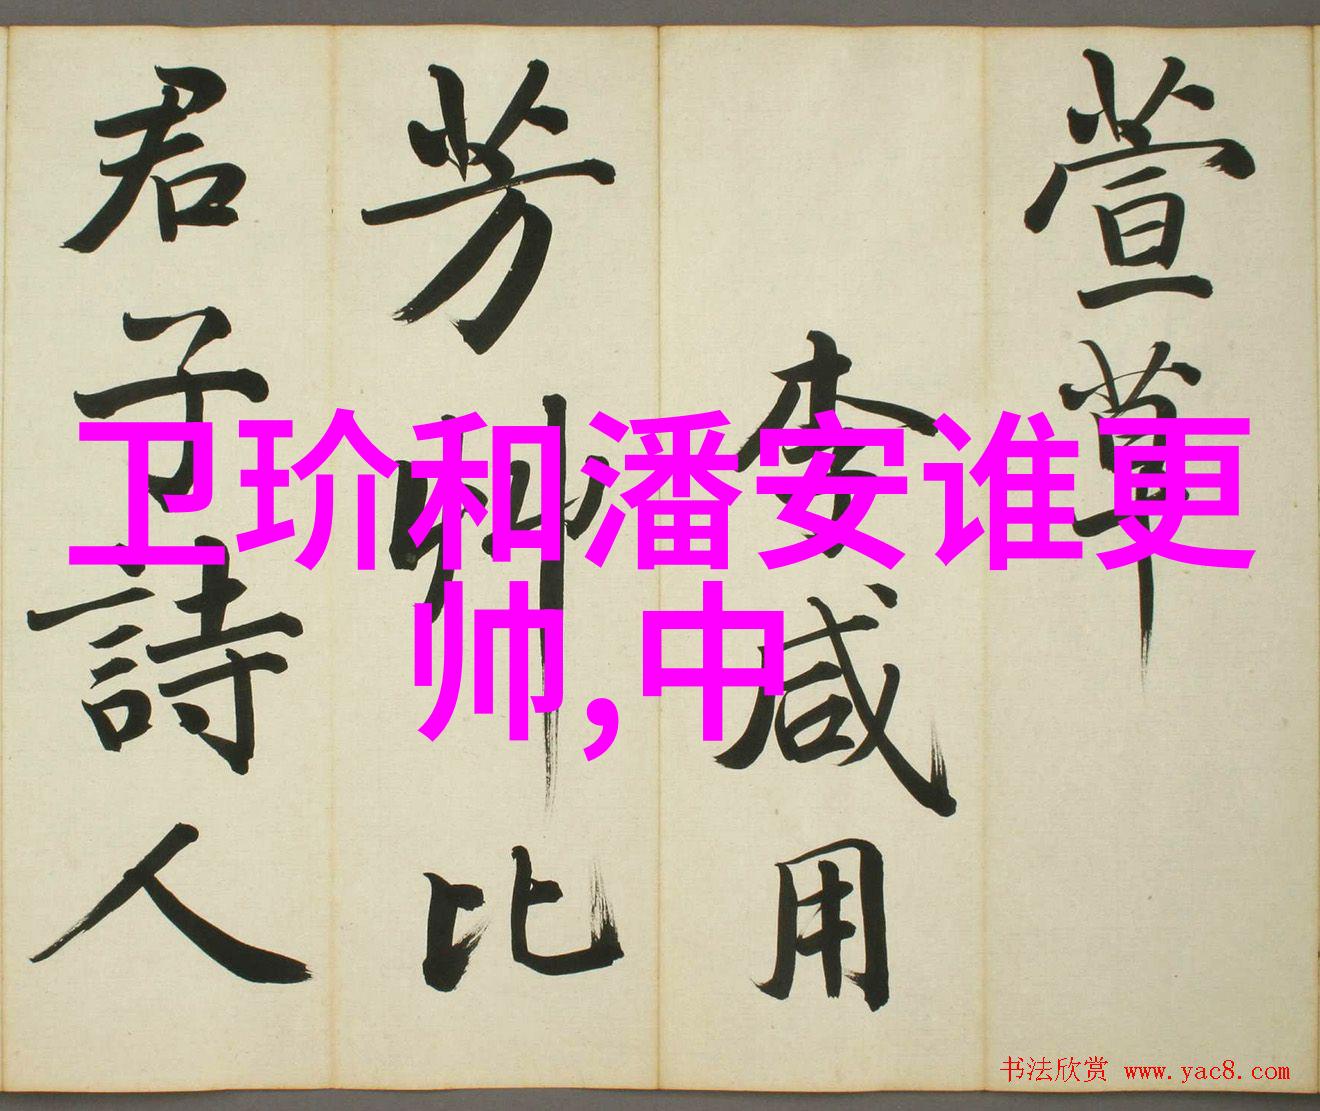 萱草
李咸用
芳草比
君子詩人
卫玠和潘安谁更
帅,中
书法欣赏 www.yac8.com